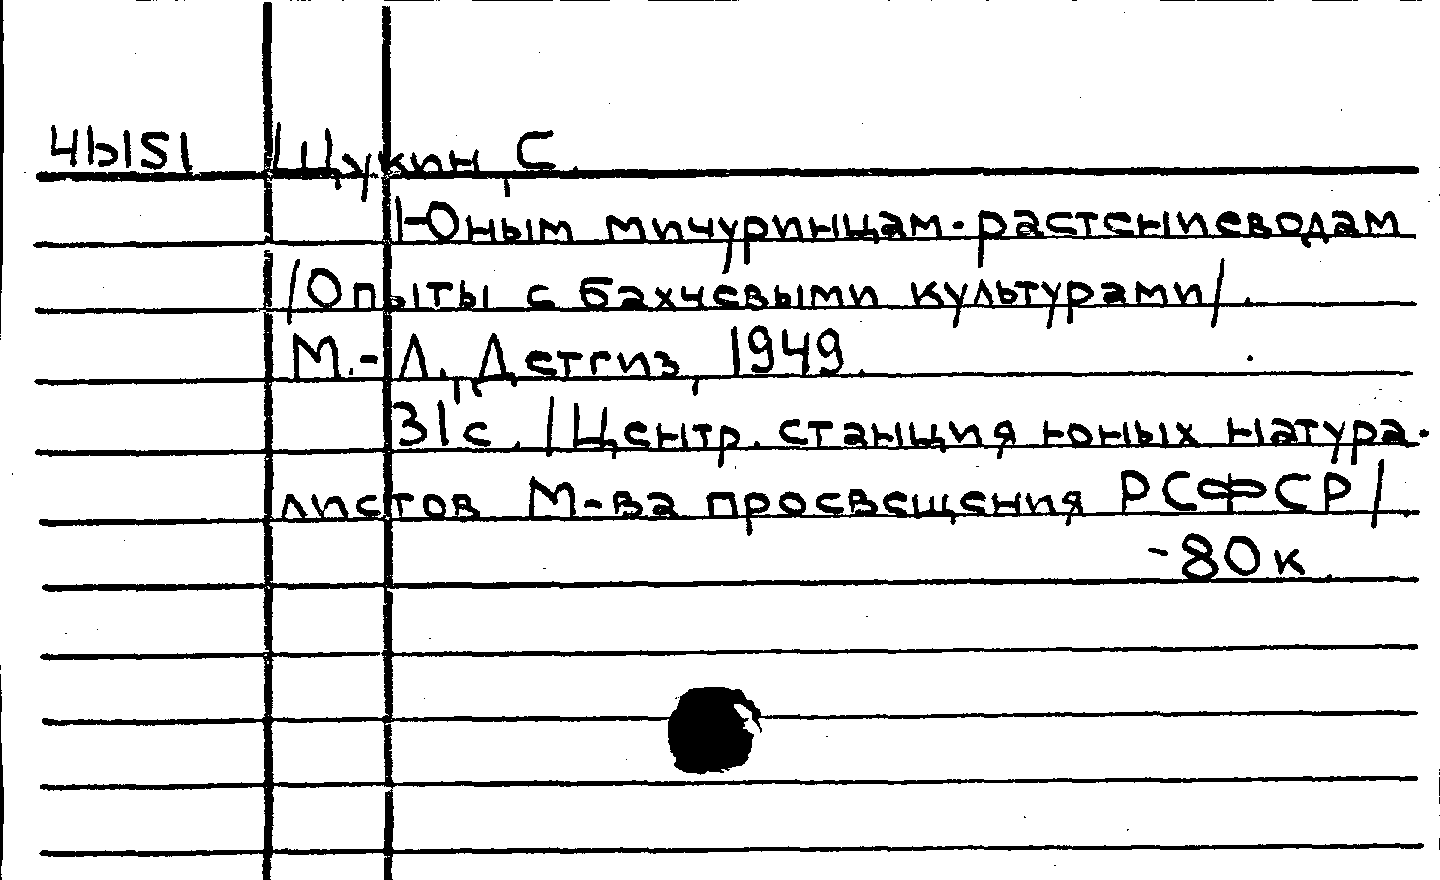 4Ы51 Щукин, С.
Юным мичуринцам-растениеводам
/Опыты с бахчевыми культурами/.
М.-Л., Детгиз, 1949.
31с. /Центр. станция юных натура-
листов М-ва просвещения РСФСР/.
-80к.